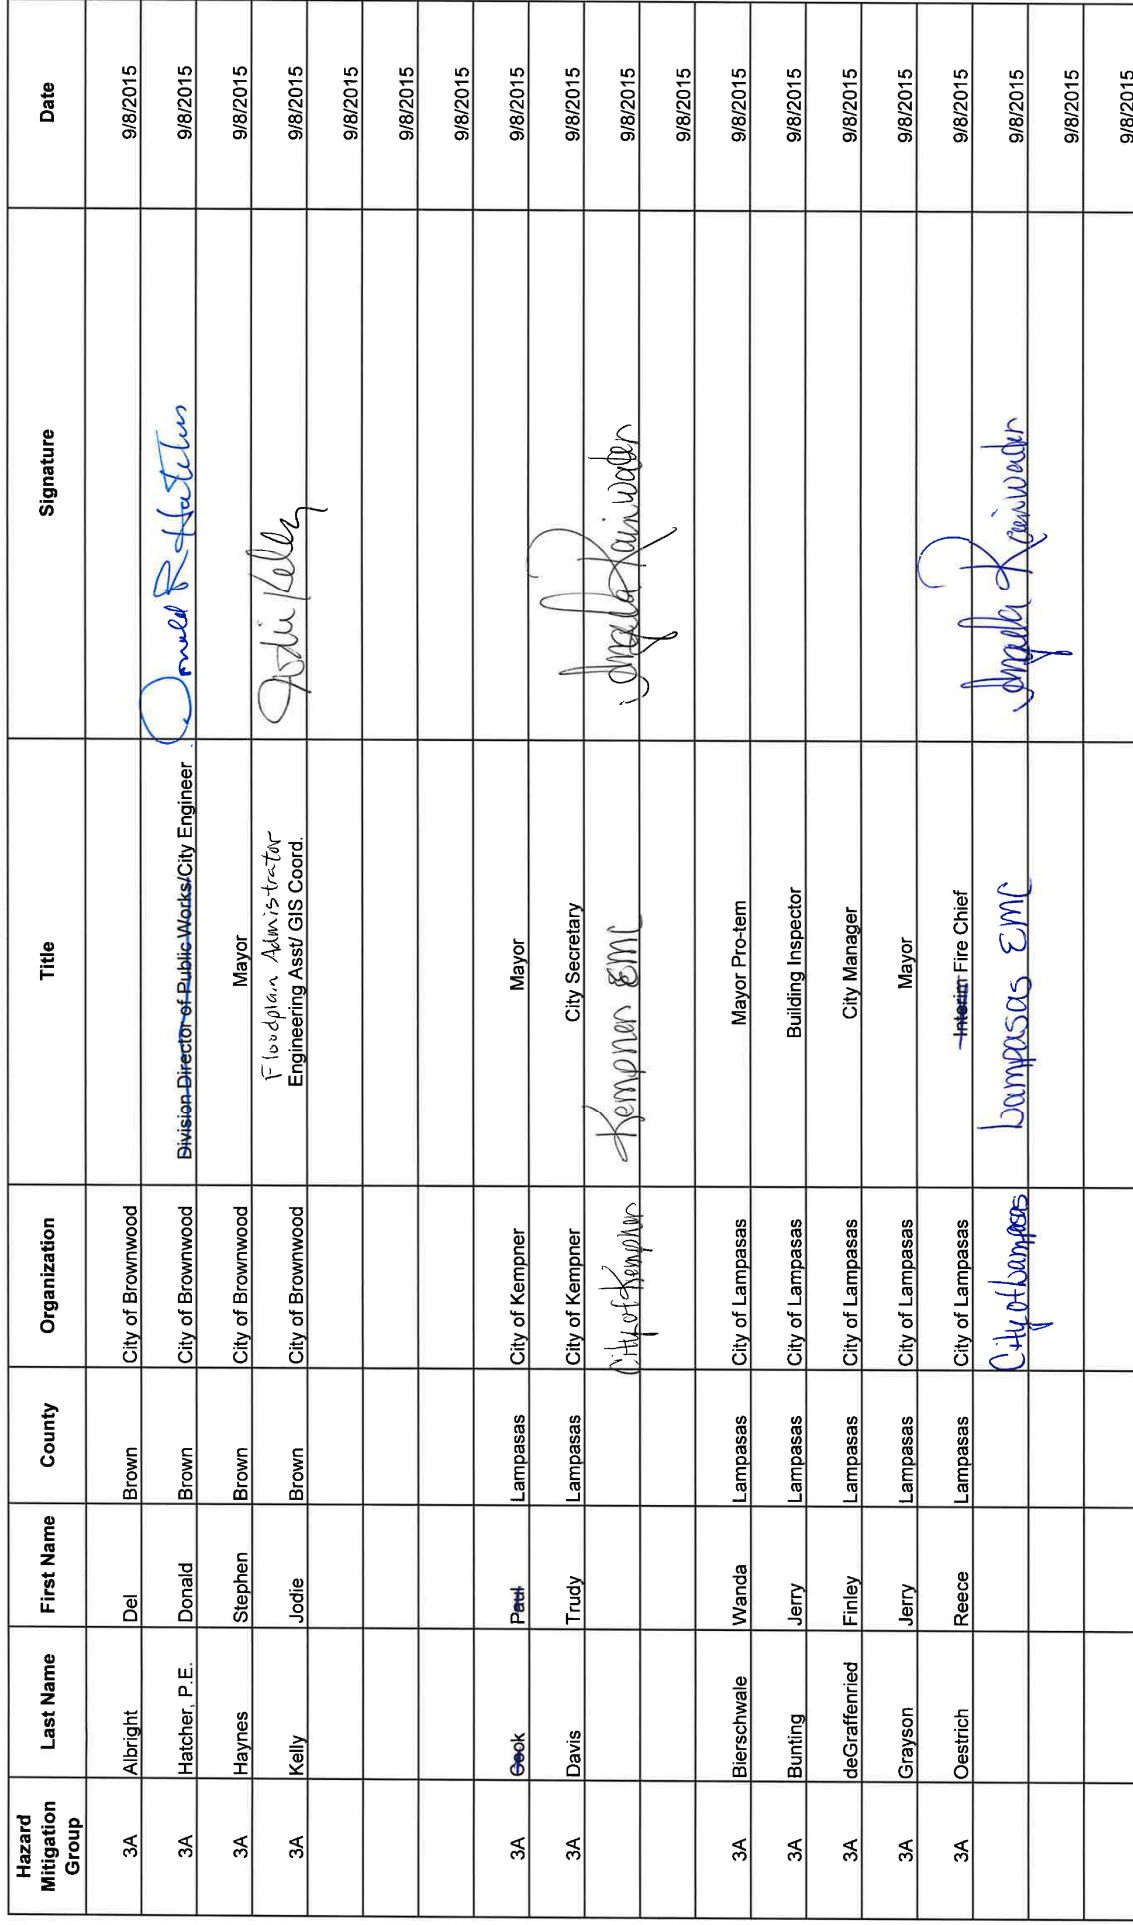 Hazard Mitigation Group Last Name First Name County Organization Title Signature Date
3A Albright Del Brown City of Brownwood 9/8/2015
3A Hatcher, P.E. Donald Brown City of Brownwood Division Director of Public Works/City Engineer Donald R Hatcher 9/8/2015
3A Haynes Stephen Brown City of Brownwood Mayor 9/8/2015
Floodplain Administrator
3A Kelly Jodie Brown City of Brownwood Engineering Asst/ GIS Coord. Jodie Kelly 9/8/2015
9/8/2015
9/8/2015
9/8/2015
3A Cook Paul Lampasas City of Kempner Mayor 9/8/2015
3A Davis Trudy Lampasas City of Kempner City Secretary 9/8/2015
City of Kempner Kempner EMC Angela Rainwater 9/8/2015
9/8/2015
3A Bierschwale Wanda Lampasas City of Lampasas Mayor Pro-tem 9/8/2015
3A Bunting Jerry Lampasas City of Lampasas Building Inspector 9/8/2015
3A deGraffenried Finley Lampasas City of Lampasas City Manager 9/8/2015
3A Grayson Jerry Lampasas City of Lampasas Mayor 9/8/2015
3A Oestrich Reece Lampasas City of Lampasas Interim Fire Chief 9/8/2015
City of Lampasas Lampasas EMC Angela Rainwater 9/8/2015
9/8/2015
9/8/2015